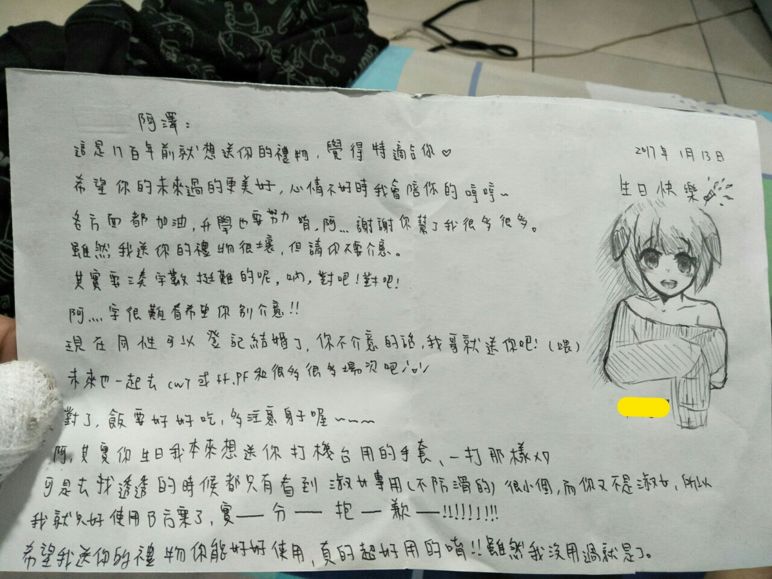 阿澤:
這是17百年前就想送你的禮物,覺得特適合你♡
2017年1月13日
生日快樂
希望你的未來過的更美好,心情不好時我會陪你的哼哼~
各方面都加油,升學也要努力唷,阿...謝謝你幫了我很多很多。
雖然我送你的禮物很壞,但請你不要介意。
其實要湊字數挺難的呢,吶,對吧!對吧!
阿....字很難看希望你別介意!!
現在同性可以登記結婚了,你不介意的話,我哥就送你吧!(喂)
未來也一起去CWT或FF.PF和很多很多場次吧
對了,飯要好好吃,多注意身子喔~~~
阿,其實你生日我本來想送你打機台用的手套、一打那樣XD
可是去找透透的時候都只有看到淑女專用(不防滑的)很小個,而你又不是淑女,所以
我就只好使用B方案了,實—分—抱—歉—!!!!!!!!
希望我送你的禮物你能好好使用,真的超好用的唷!!雖然我沒用過就是了。